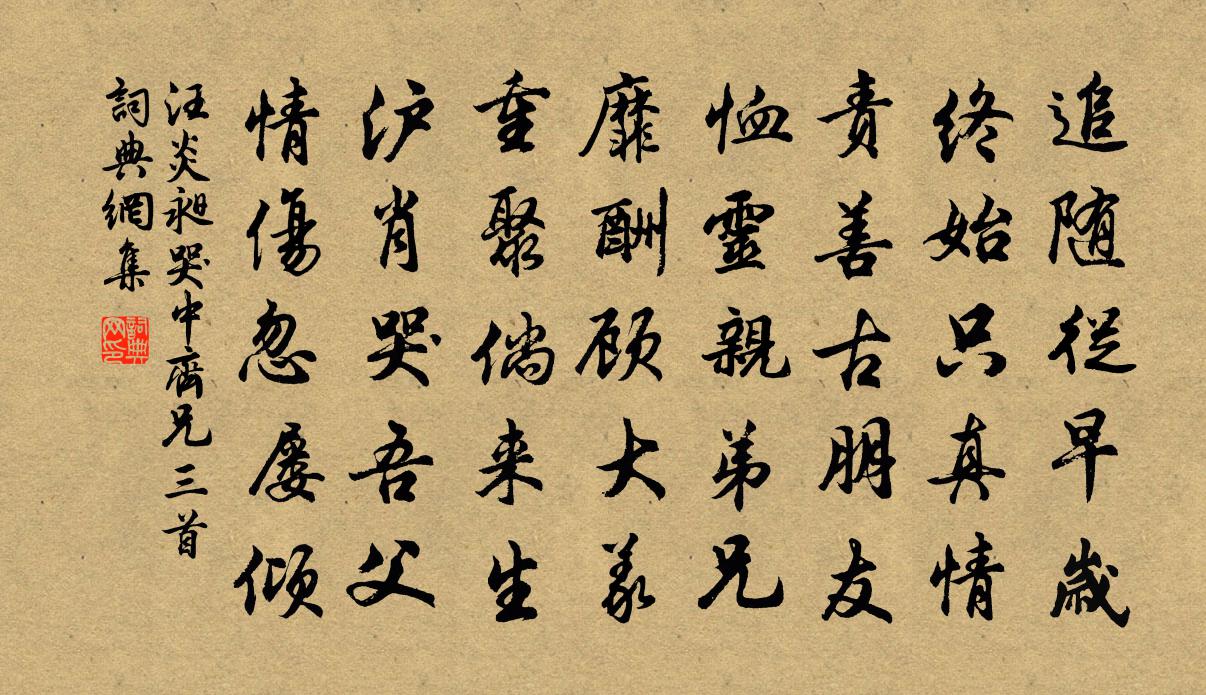 追随從早歲
終始只真情
責善古朋友
恤靈親弟兄
靡酬顾大義
重聚倘来生
沪肖哭吾父
情傷忽屡倾
汪炎昶哭中齊兄三首
詞典網集
詞典网印